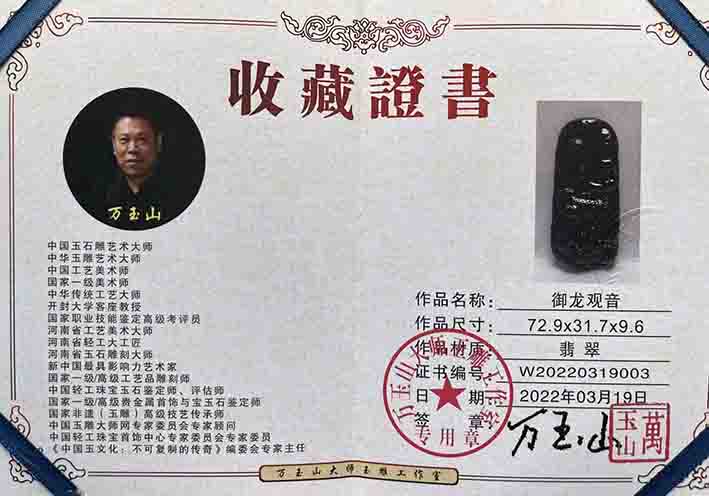 收藏證書
万玉山
中国玉石雕艺术大师
中华玉雕艺术大师
中国工艺美术师
国家一级美术师
中华传统工艺大师
开封大学客座教授
国家职业技能鉴定高级考评员
河南省工艺美术大师
河南省轻工大工匠
河南省玉石雕刻大师
新中国最具影响力艺术家
国家一级/高级工艺品雕刻师
中国轻工珠宝玉石鉴定师、评估师
国家一级/高级贵金属首饰与宝玉石鉴定师
国家非遗（玉雕）高级技艺传承师
中国玉雕大师网专家委员会专家顾问
中国轻工珠宝首饰中心专家委员会专家委员
《中国玉文化：不可复制的传奇》编委会专家主任
作品名称： 御龙观音
作品尺寸： 72.9x31.7x9.6
作品材质： 翡翠
证书编号： W20220319003
日期： 2022年03月19日
签章： 万玉山
萬玉山
万玉山大师玉雕工作室
专用章
万玉山大师玉雕工作室